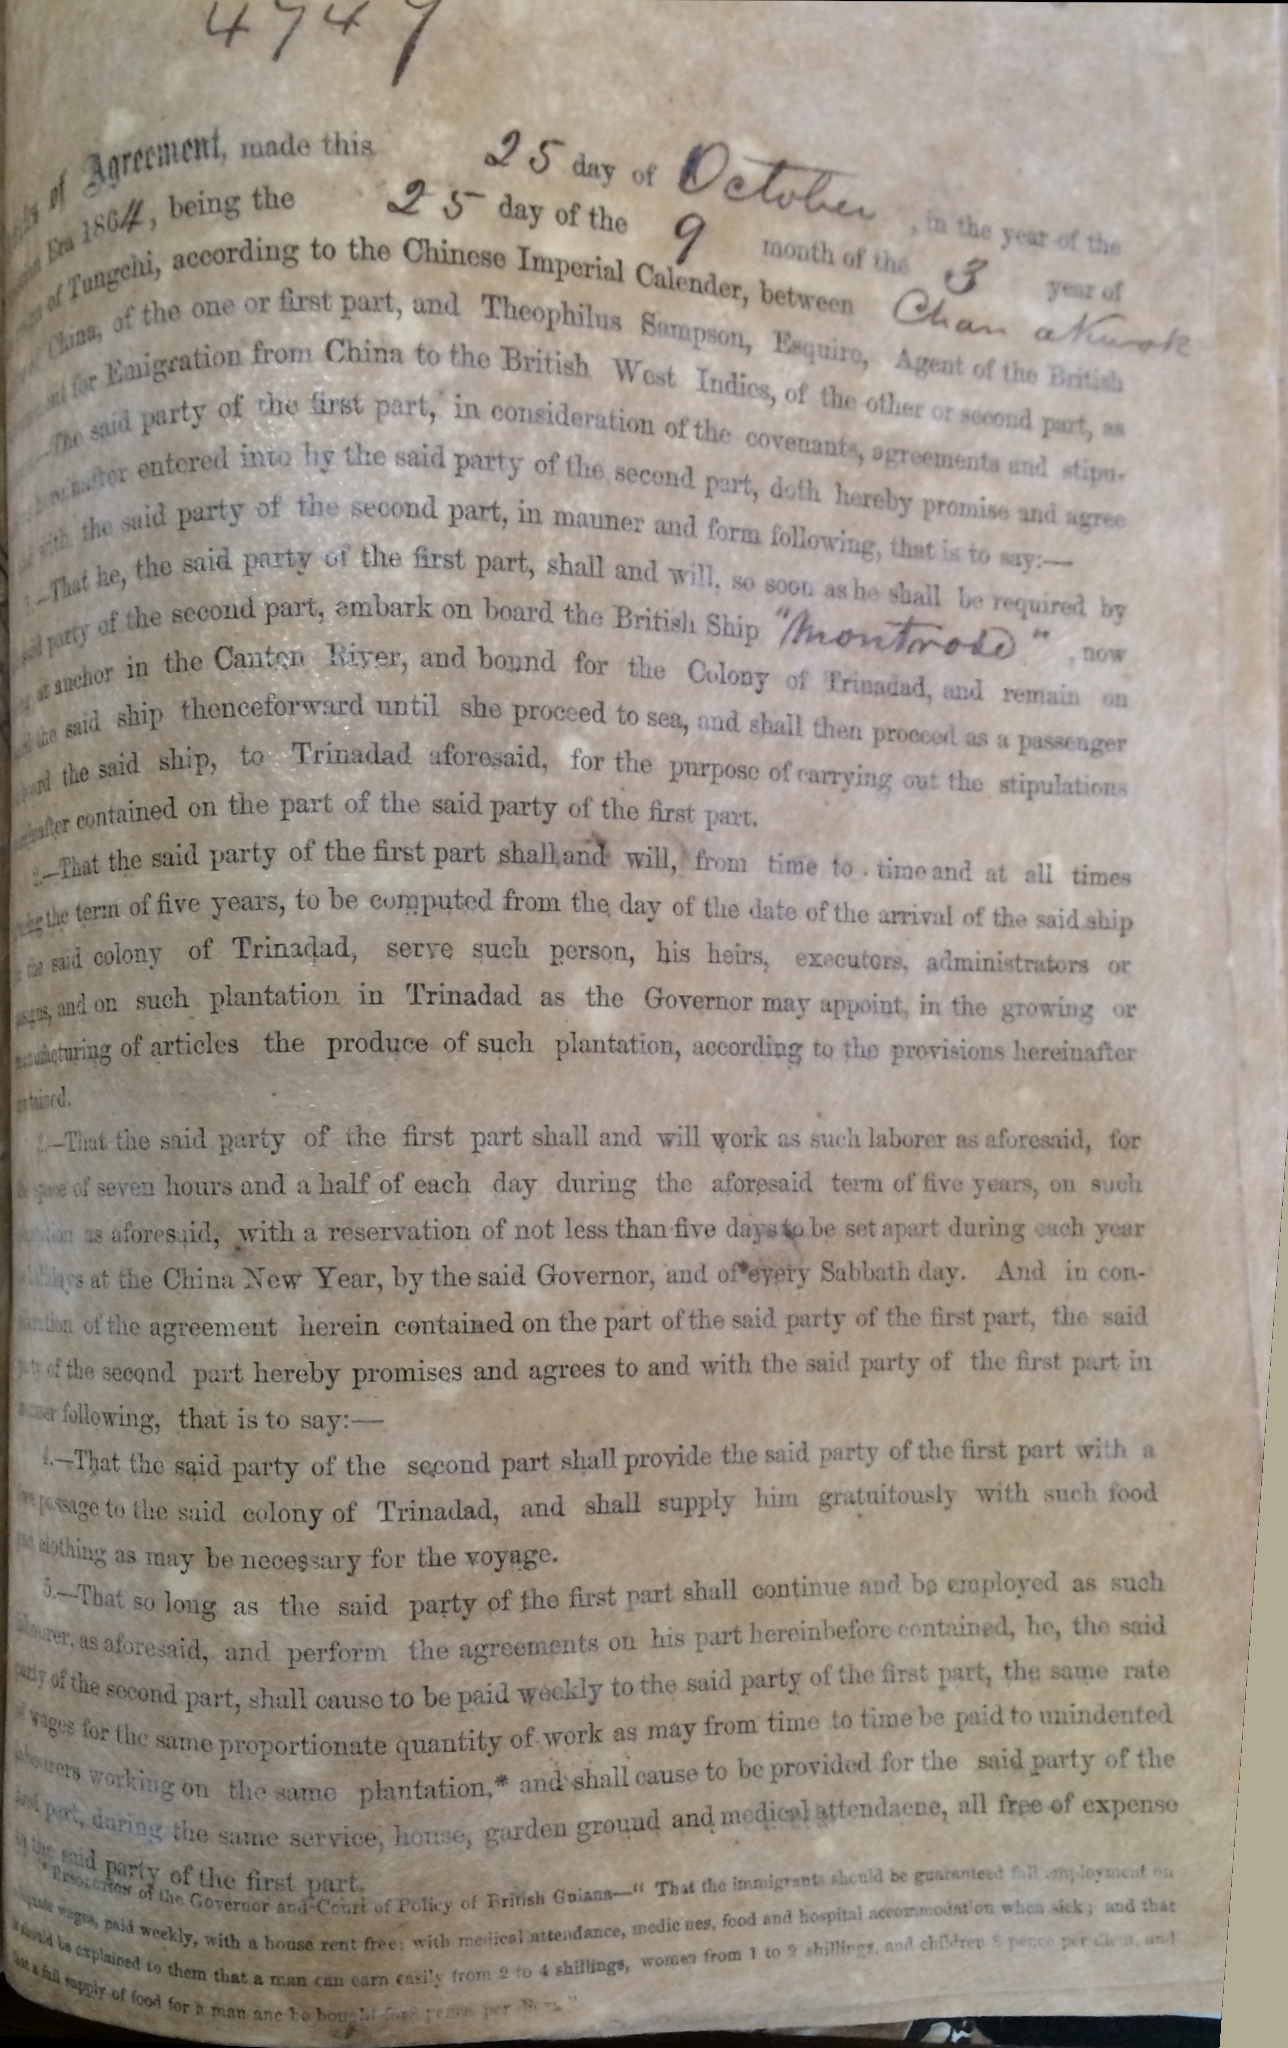 4749
of Agreement, made this 25 day of October, in the year of the
Era 1864, being the 25 day of the 9 month of the 3 year of
of Tungchi, according to the Chinese Imperial Calender, between Chan
China, of the one or first part, and Theophilus Sampson, Esquire, Agent of the British
for Emigration from China to the British West Indies, of the other or second part, as
The said party of the first part, in consideration of the covenants, agreements and stipu-
hereinafter entered into by the said party of the second part, doth hereby promise and agree
with the said party of the second part, in manner and form following, that is to say:—
—That he, the said party of the first part, shall and will, so soon as he shall be required by
said party of the second part, embark on board the British Ship "Montrose", now
at anchor in the Canton River, and bound for the Colony of Trinadad, and remain on
the said ship thenceforward until she proceed to sea, and shall then proceed as a passenger
board the said ship, to Trinadad aforesaid, for the purpose of carrying out the stipulations
hereinafter contained on the part of the said party of the first part.
2.—That the said party of the first part shall and will, from time to time and at all times
during the term of five years, to be computed from the day of the date of the arrival of the said ship
the said colony of Trinadad, serve such person, his heirs, executors, administrators or
assigns, and on such plantation in Trinadad as the Governor may appoint, in the growing or
manufacturing of articles the produce of such plantation, according to the provisions hereinafter
contained.
—That the said party of the first part shall and will work as such laborer as aforesaid, for
the space of seven hours and a half of each day during the aforesaid term of five years, on such
plantation as aforesaid, with a reservation of not less than five days to be set apart during each year
holidays at the China New Year, by the said Governor, and of every Sabbath day. And in con-
sideration of the agreement herein contained on the part of the said party of the first part, the said
party of the second part hereby promises and agrees to and with the said party of the first part in
manner following, that is to say:—
4.—That the said party of the second part shall provide the said party of the first part with a
passage to the said colony of Trinadad, and shall supply him gratuitously with such food
and clothing as may be necessary for the voyage.
5.—That so long as the said party of the first part shall continue and be employed as such
labourer, as aforesaid, and perform the agreements on his part hereinbefore contained, he, the said
party of the second part, shall cause to be paid weekly to the said party of the first part, the same rate
of wages for the same proportionate quantity of work as may from time to time be paid to unindented
labourers working on the same plantation,* and shall cause to be provided for the said party of the
first part, during the same service, house, garden ground and medical attendacne, all free of expense
to the said party of the first part.
*RESOLUTION of the Governor and Court of Policy of British Guiana—“ That the immigrants should be guaranteed full employment on
wages, paid weekly, with a house rent free; with medical attendance, medicines, food and hospital accommodation when sick; and that
it should be explained to them that a man can earn easily from 2 to 4 shillings, women from 1 to 2 shillings, and children 8 pence per diem, and
that a full supply of food for a man anc be bought for pence per diem.”